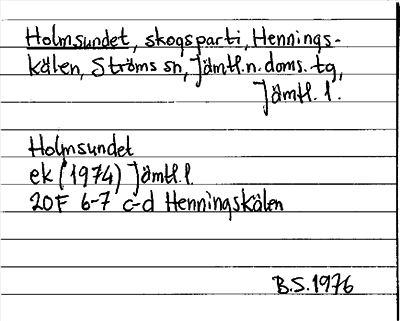 Holmsundet, skogsparti, Hennings-
kälen, Ströms sn, Jämtl.n.doms.tg,
Jämtl. l.
Holmsundet
ek (1974) Jämtl.l.
20F 6-7 c-d Henningskälen
B.S.1976